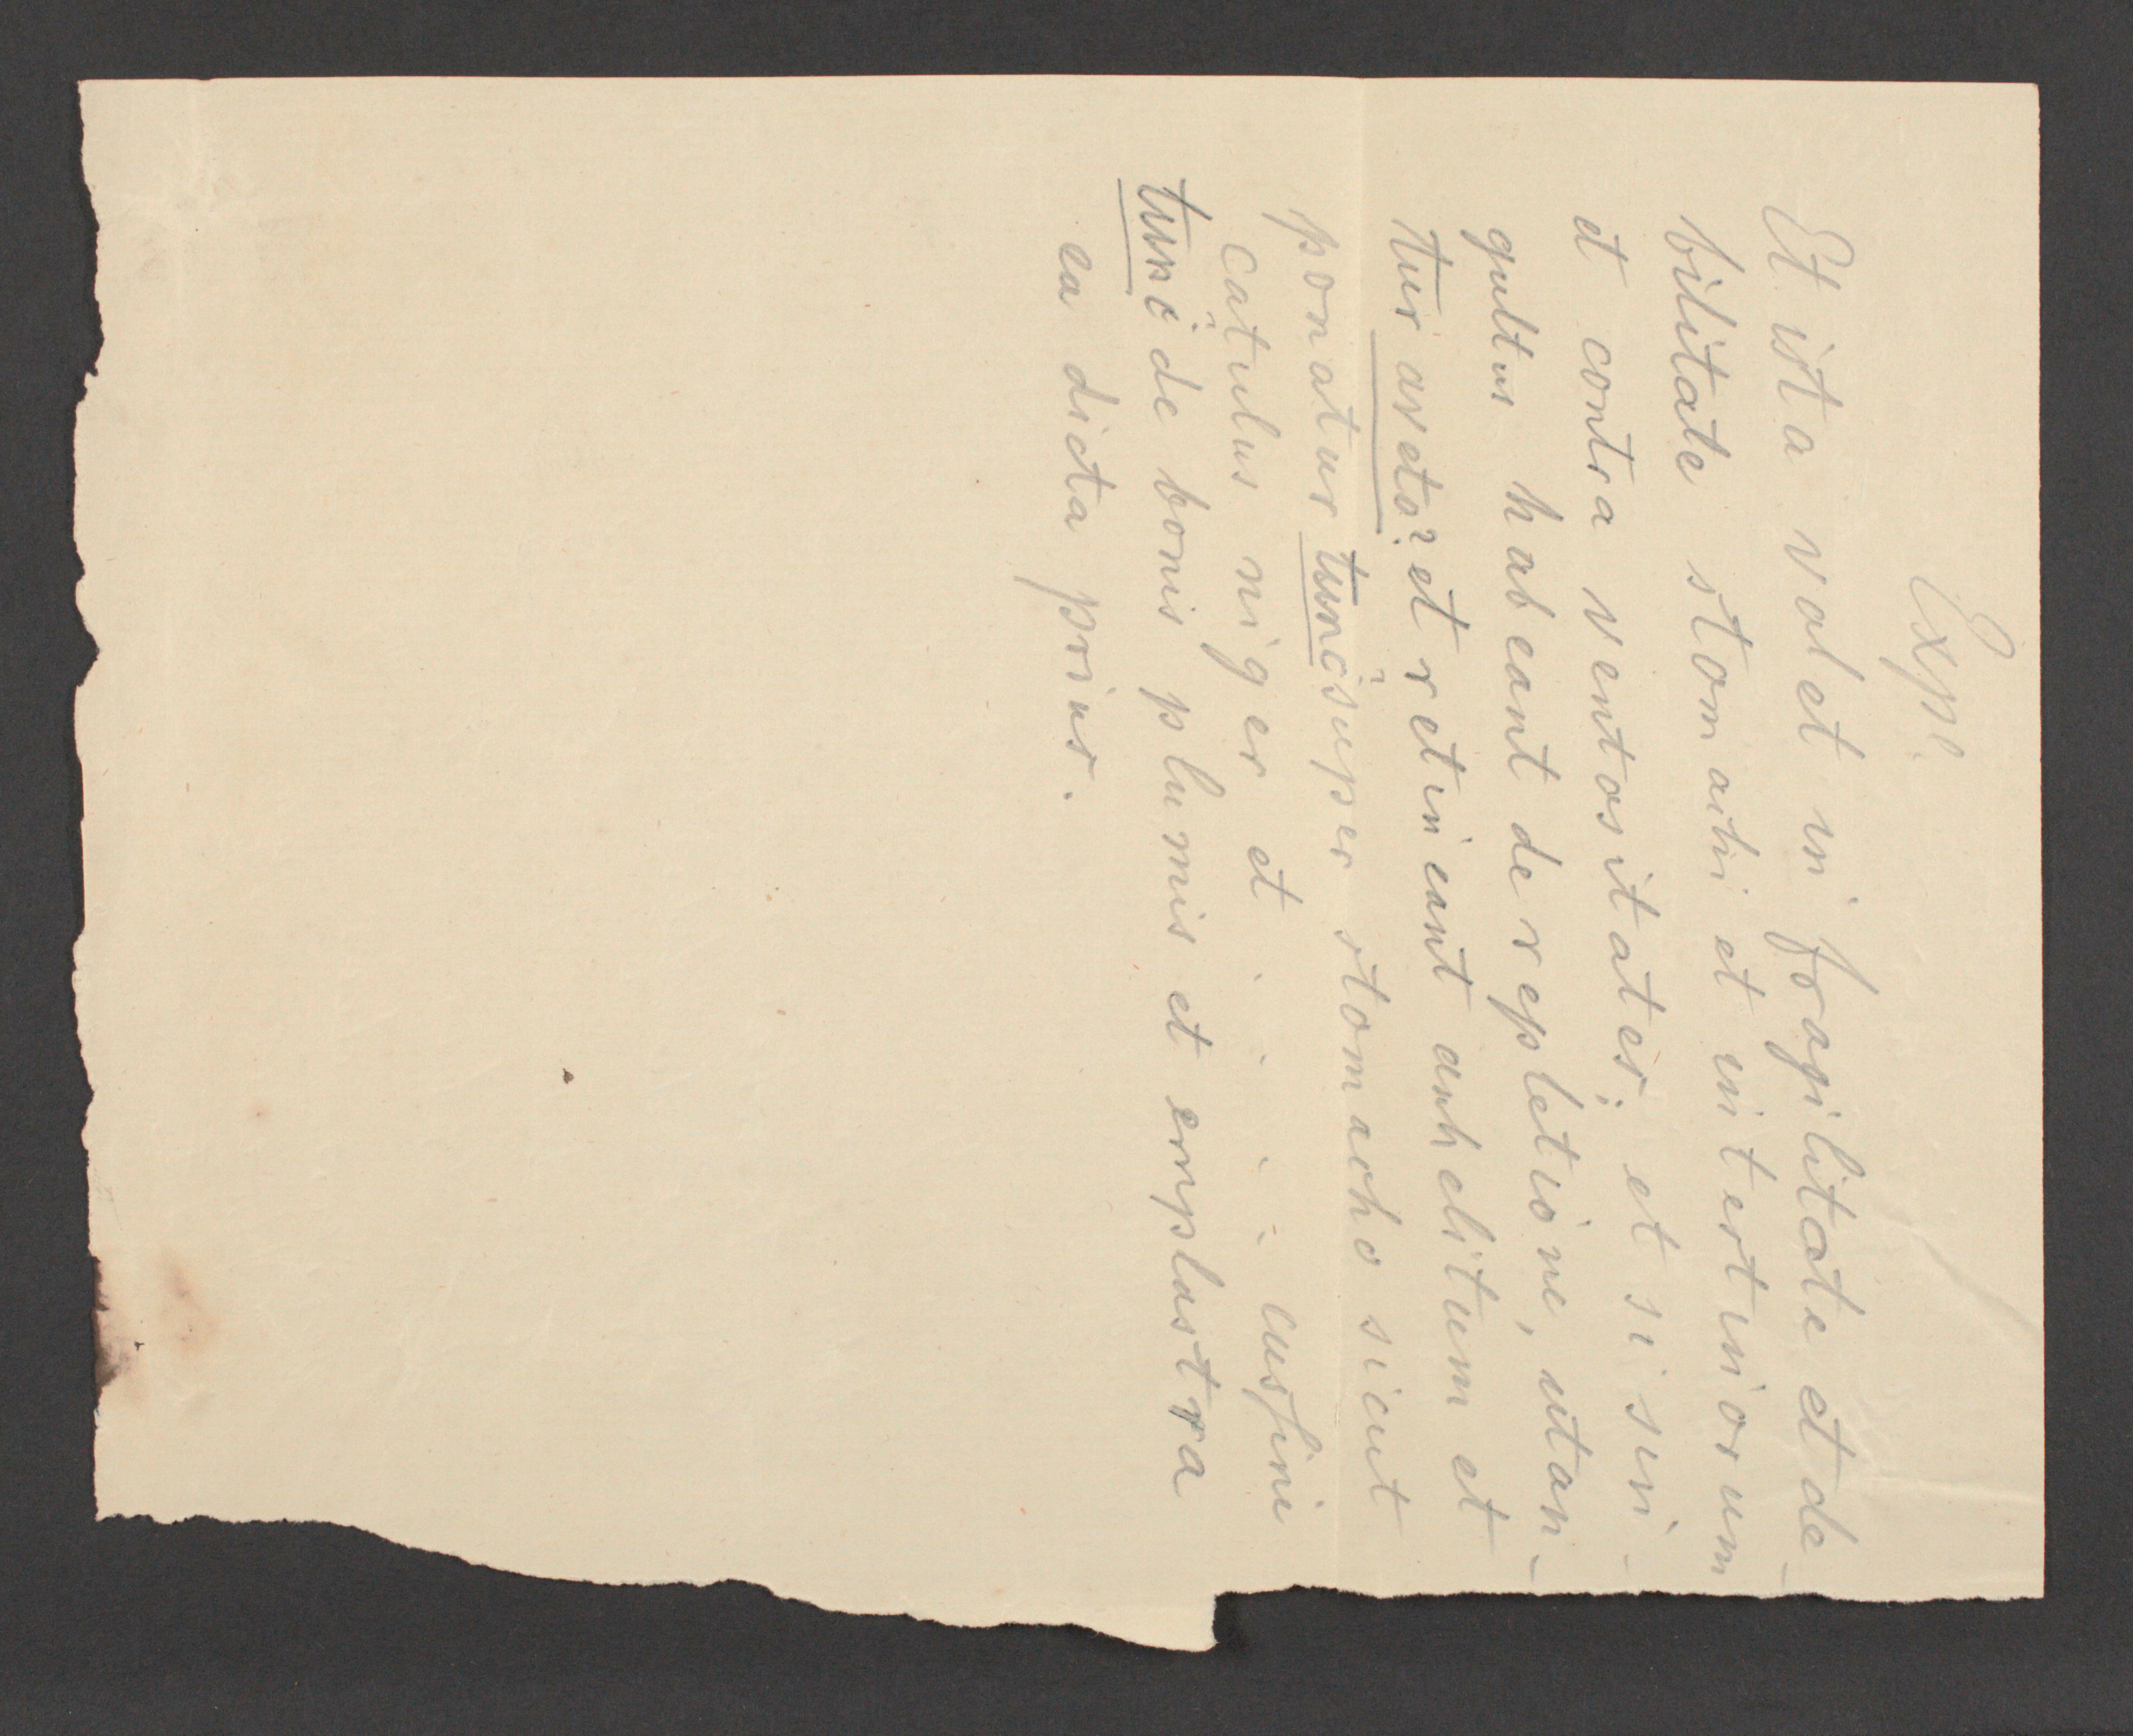 Expe.
Et ista valet in fragilitate et de-
bilitate stomachi et intestinorum
et contra ventositates; et si sin-
gultus habeant de repletione, utan-
tur aneto? et retineant anhelitum et
ponatur tunc super stomacho sicut
catulus niger et . . . . . cusfini
tunc de bonis plumis et emplastra
ea dicta prius.